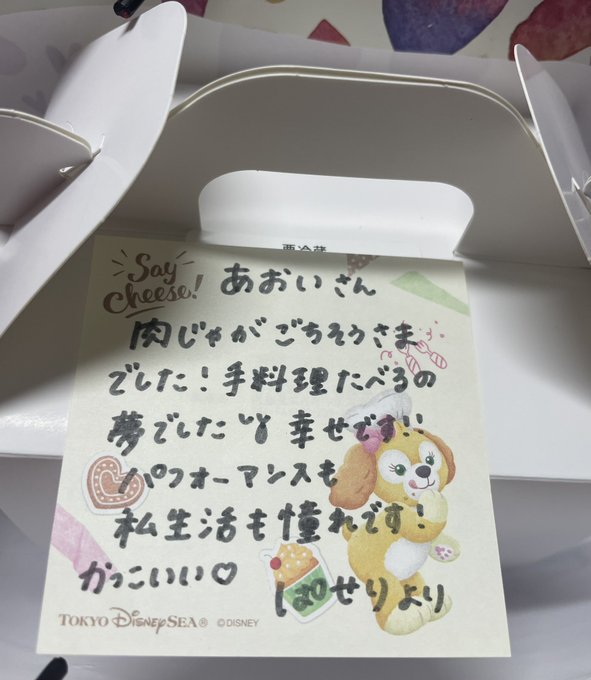 要冷蔵
Say
Cheese!
あおいさん
肉じゃがごちそうさま
でした！手料理たべるの
夢でした 幸せです!!
パフォーマンスも
私生活も憧れです！
かっこいい♡
ぱせりより
TOKYO DISNEY SEA® ©DISNEY